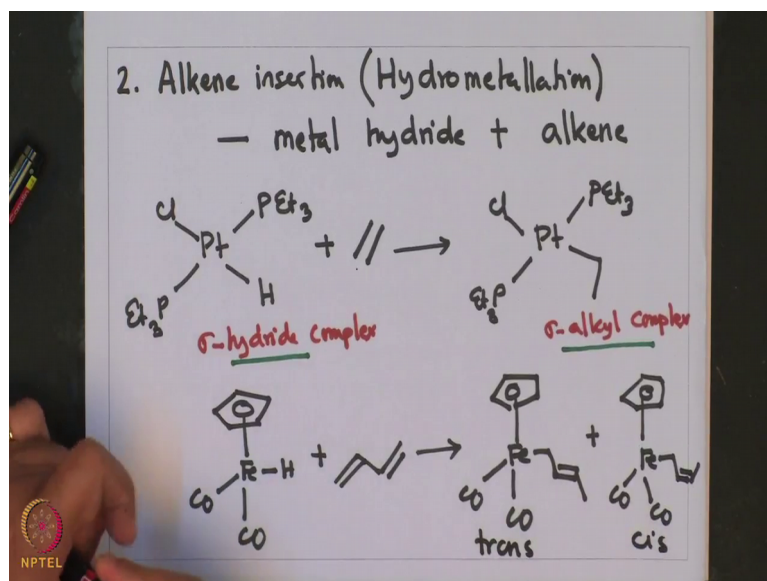 2. Alkene insertion (Hydrometallation)
— metal hydride + alkene
Cl PEt3 Cl PEt3
Pt + → Pt
Et3P H Et3P
σ-hydride complex σ-alkyl complex
Fe-H + → Fe + Fe
CO CO CO CO CO CO
trans cis
NPTEL